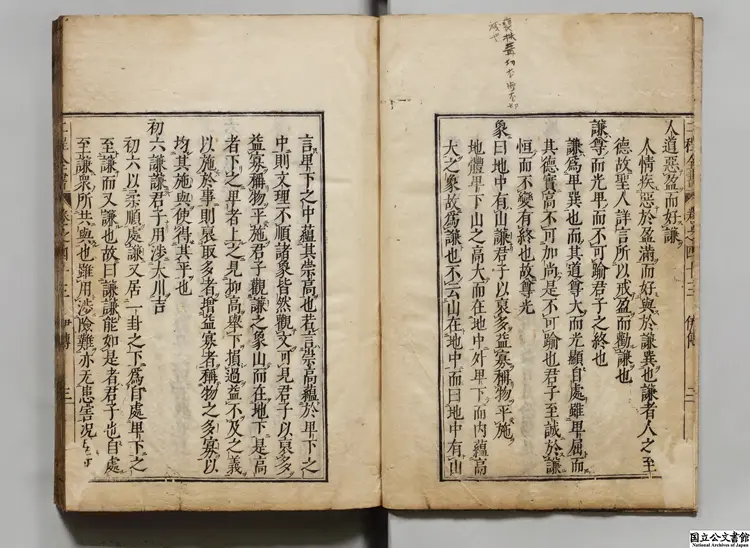 二程全書 卷之四十三 伊傳 二
人道惡盈而好謙
人情疾惡於盈滿而好與於謙巽也謙者人之至
德故聖人詳言所以戒盈而勸謙也
謙尊而光卑而不可踰君子之終也
謙爲卑巽也而其道尊大而光顯自處雖卑屈而
其德實高不可加尚是不可踰也君子至誠於謙
恒而不變有終也故尊光
象曰地中有山謙君子以裒多益寡稱物平施
地體卑下山之高大而在地中外卑下而內蘊高
大之象故爲謙也不云山在地中而曰地中有山
言卑下之中蘊其崇高也若言崇高蘊於卑下之
中則文理不順諸象皆然觀文可見君子以裒多
益寡稱物平施君子觀謙之象山而在地下是高
者下之卑者上之見抑高舉下損過益不及之義
以施於事則裒取多者增益寡者稱物之多寡以
均其施與使得其平也
初六謙謙君子用涉大川吉
初六以柔順處謙又居一卦之下爲自處卑下之
至謙而又謙也故曰謙謙能如是者君子也自處
至謙衆所共與也雖用涉險難亦无患害況
二程全書 卷之四十三 伊傳 三
国立公文書館
National Archives of Japan